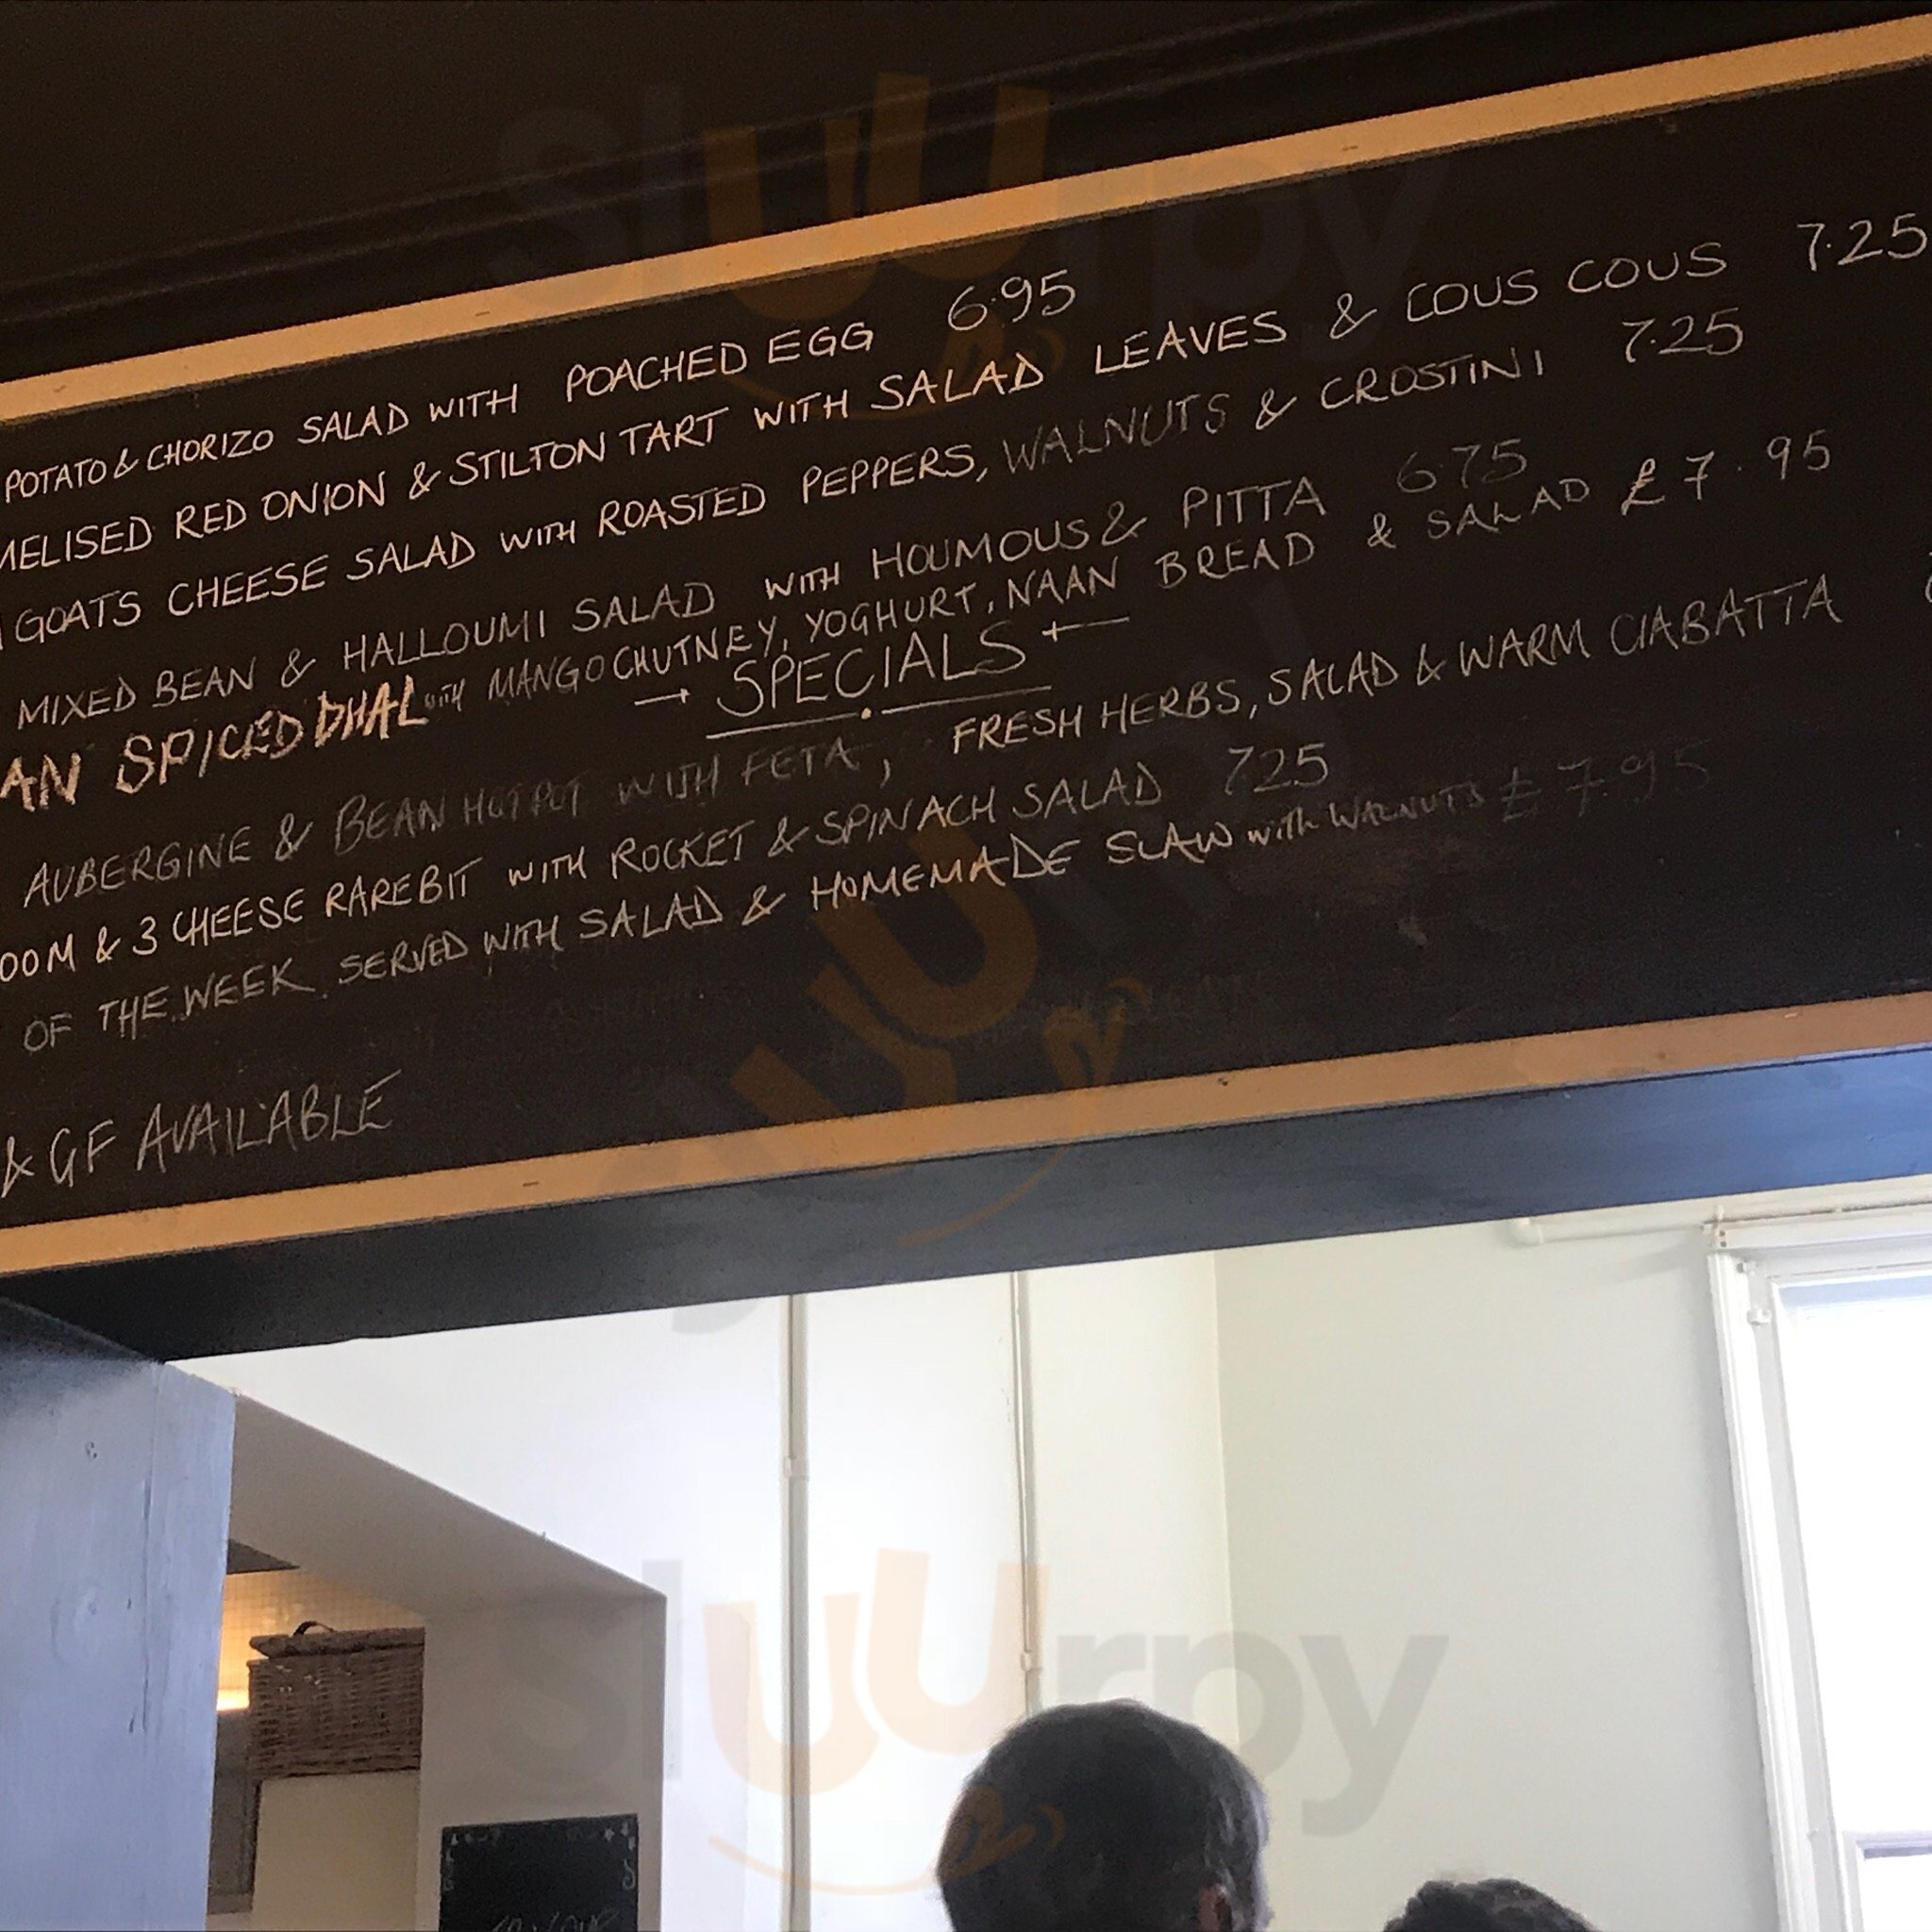 POTATO & CHORIZO SALAD WITH POACHED EGG 6.95
MELISED RED ONION & STILTON TART WITH SALAD LEAVES & COUS COUS 7.25
GOATS CHEESE SALAD WITH ROASTED PEPPERS, WALNUTS & CROSTINI 7.25
MIXED BEAN & HALLOUMI SALAD WITH HOUMOUS & PITTA 6.75
AN SPICED DHAL WITH MANGO CHUTNEY, YOGHURT, NAAN BREAD & SALAD £7.95
SPECIALS
AUBERGINE & BEAN HOTPOT WITH FETA, FRESH HERBS, SALAD & WARM CIABATTA
OOM & 3 CHEESE RAREBIT WITH ROCKET & SPINACH SALAD 7.25
OF THE WEEK SERVED WITH SALAD & HOMEMADE SLAW with WALNUTS £7.95
& GF AVAILABLE
sluurpy
sluurpy
sluurpy